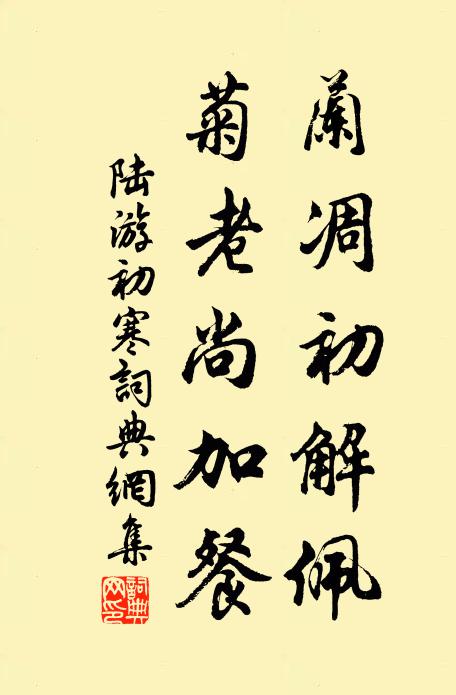 蘭凋初解佩
菊老尚加餐
陸游初寒詞典網集